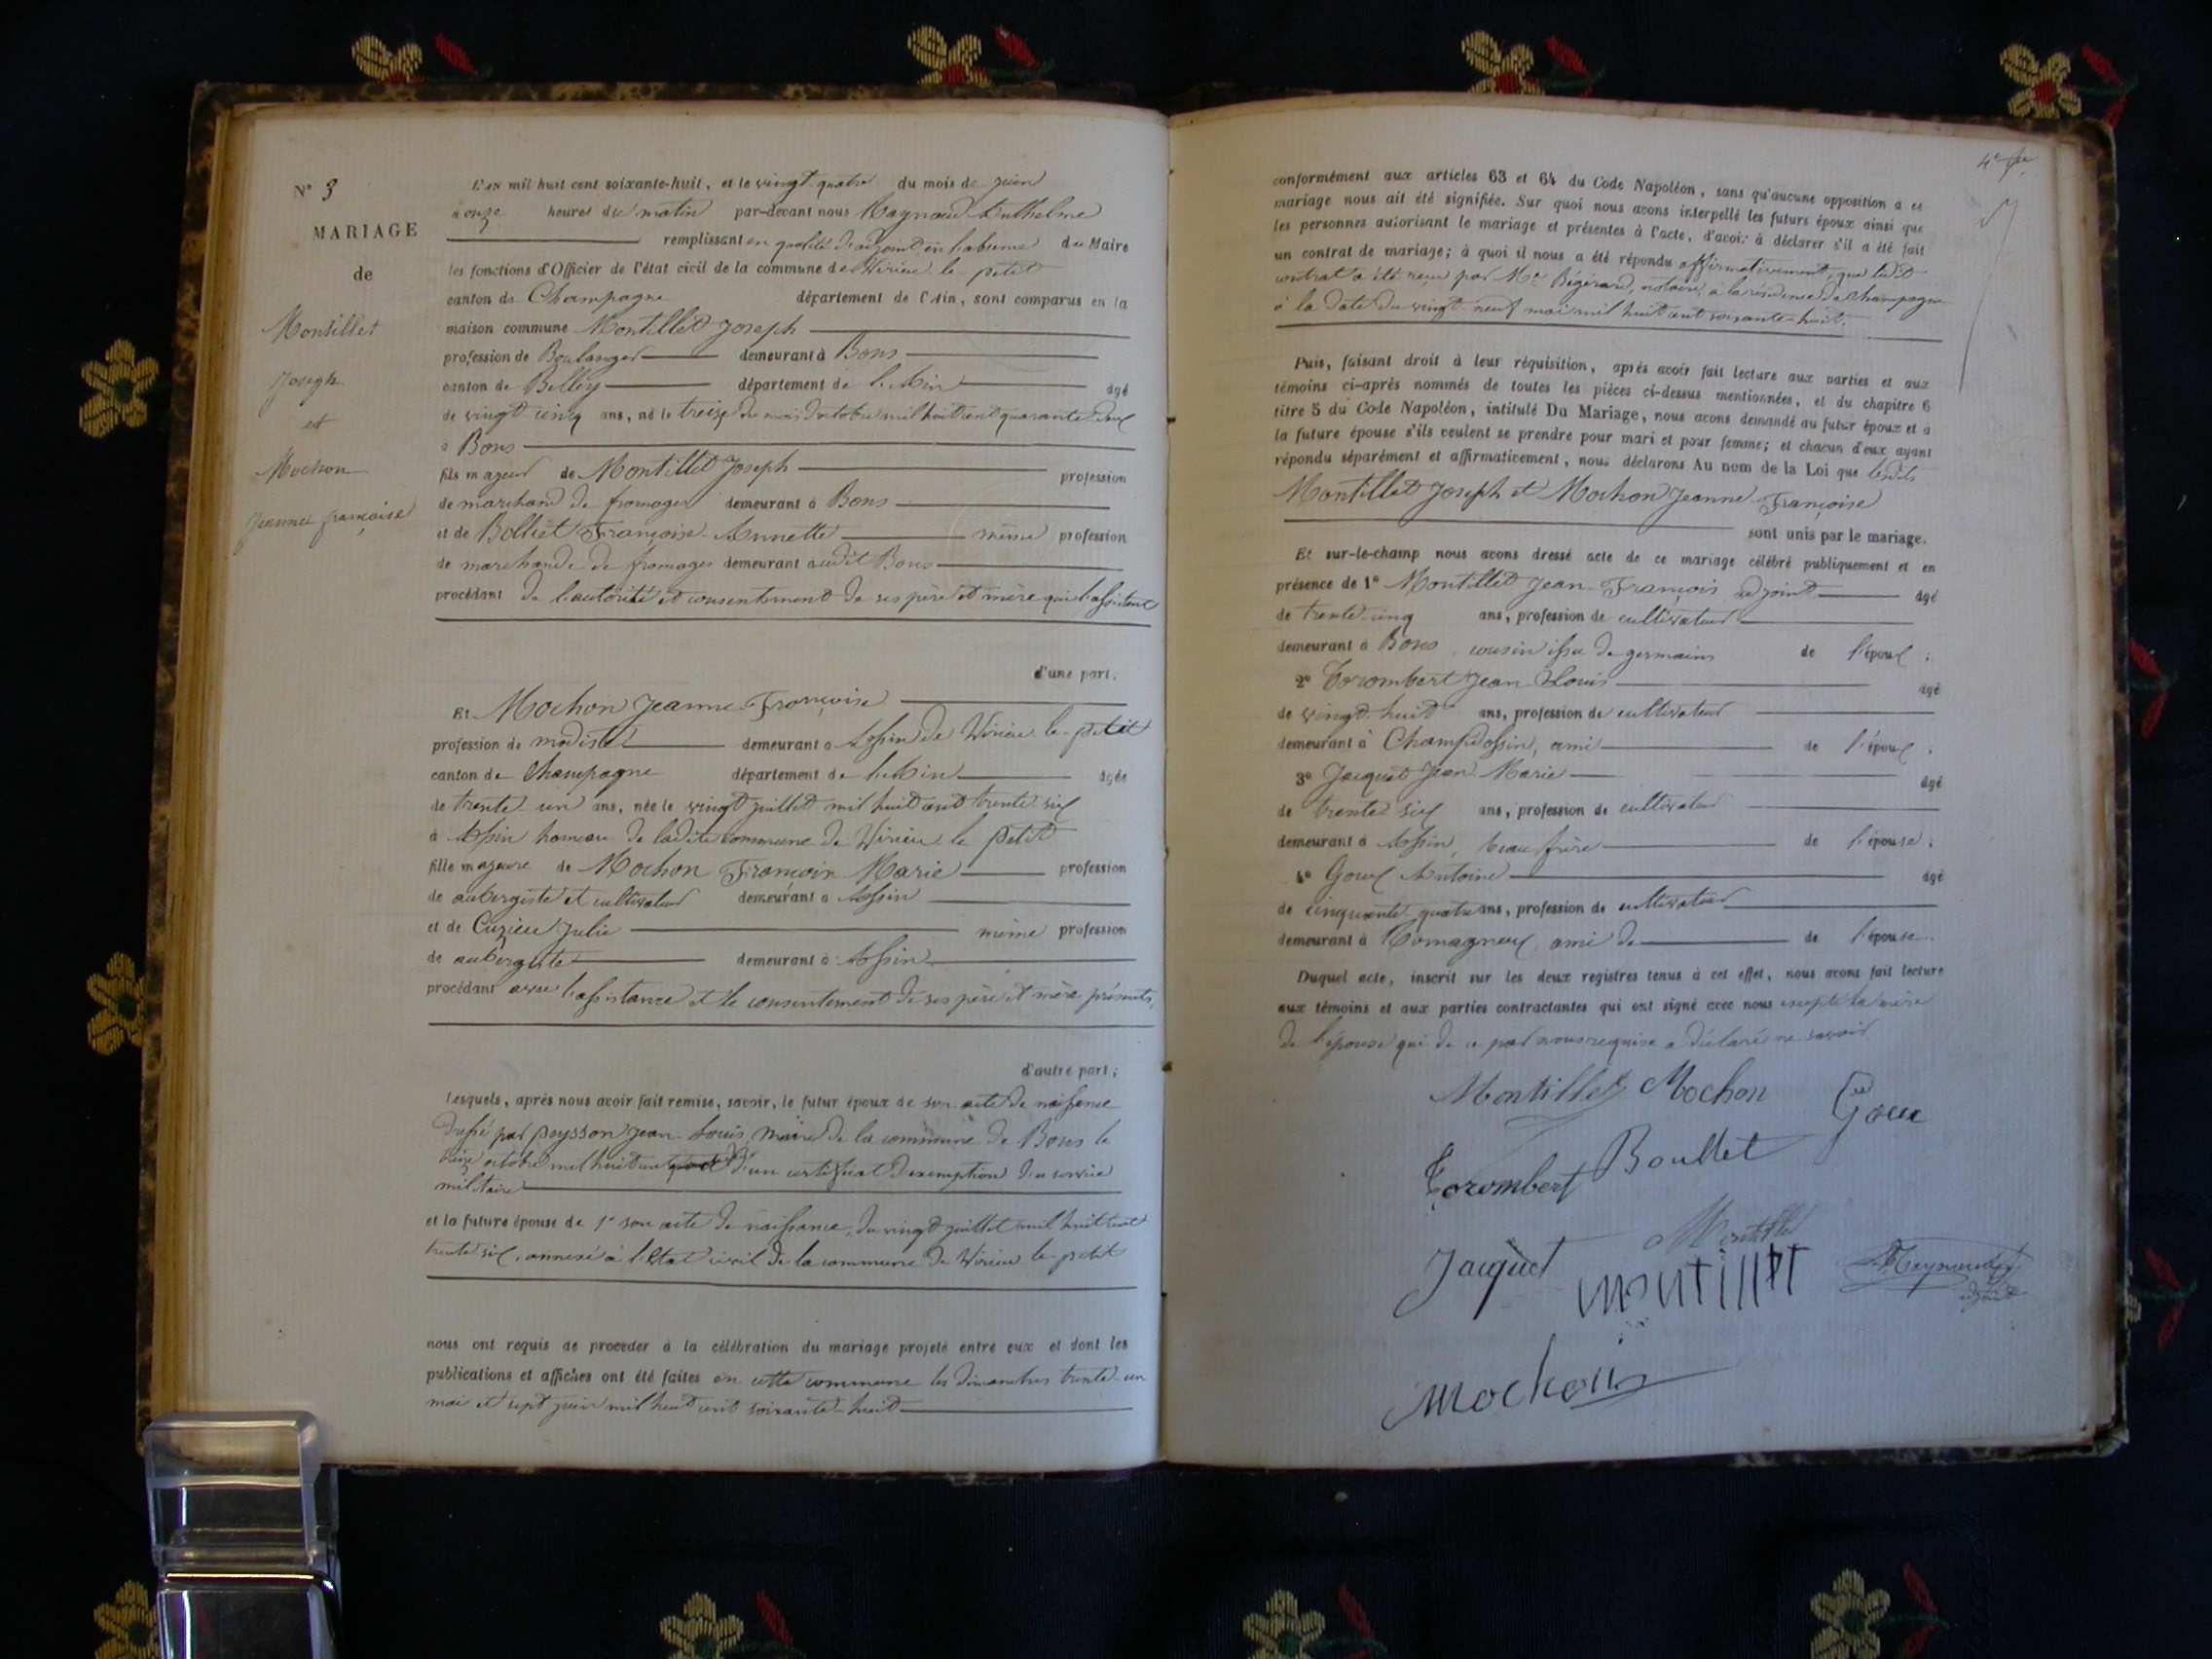 N° 3
MARIAGE
de
Montillet
Joseph
et
Mochon
Jeanne françoise
L'AN mil huit cent soixante-huit, et le vingt quatre du mois de juin
à onze heures du matin par-devant nous Maynaud Anthelme
remplissant en qualité d'adjoint en l'absence du Maire
les fonctions d'Officier de l'état civil de la commune de Virieu le petit
canton de Champagne département de l'Ain, sont comparus en la
maison commune Montillet Joseph
profession de Boulanger demeurant à Bons
canton de Belley département de l'Ain âgé
de vingt cinq ans, né le treize du mois d'octobre mil huit cent quarante deux
à Bons
fils majeur de Montillet Joseph profession
de marchand de fromages demeurant à Bons
et de Bolliet Françoise Annette même profession
de marchande de fromages demeurant audit Bons
procédant de l'autorité et consentement de ses père et mère qui l'assistent
d'une part.
Et Mochon Jeanne Françoise
profession de modiste demeurant à Assin de Virieu le petit
canton de Champagne département de l'Ain âgée
de trente un ans, née le vingt juillet mil huit cent trente six
à Assin hameau de ladite commune de Virieu le Petit
fille majeure de Mochon François Marie profession
de aubergiste et cultivateur demeurant à Assin
et de Cuzieu Julie même profession
de aubergiste demeurant à Assin
procédant avec l'assistance et le consentement de ses père et mère présents,
d'autre part;
Lesquels, après nous avoir fait remise, savoir, le futur époux de son acte de naissance
dressé par Peysson Jean Louis, Maire de la commune de Bons le
treize octobre mil huit cent d'un certificat d'exemption du service
militaire
et la future épouse de 1° son acte de naissance, du vingt juillet mil huit cent
trente six, annexé à l'Etat civil de la commune de Virieu le petit
nous ont requis de procéder à la célébration du mariage projeté entre eux et dont les
publications et affiches ont été faites en cette commune les dimanches trente un
mai et sept juin mil huit cent soixante huit
conformément aux articles 63 et 64 du Code Napoléon, sans qu'aucune opposition à ce
mariage nous ait été signifiée. Sur quoi nous avons interpellé les futurs époux ainsi que
les personnes autorisant le mariage et présentes à l'acte, d'avoir à déclarer s'il a été fait
un contrat de mariage; à quoi il nous a été répondu affirmativement, que ledit
contrat a été reçu par Me Bégérard, notaire, à la résidence de Champagne
à la date du vingt neuf mai mil huit cent soixante huit.
Puis, faisant droit à leur réquisition, après avoir fait lecture aux parties et aux
témoins ci-après nommés de toutes les pièces ci-dessus mentionnées, et du chapitre 6
titre 5 du Code Napoléon, intitulé Du Mariage, nous avons demandé au futur époux et à
la future épouse s'ils veulent se prendre pour mari et pour femme; et chacun d'eux ayant
répondu séparément et affirmativement, nous déclarons Au nom de la Loi que lesdits
Montillet Joseph et Mochon Jeanne Françoise
sont unis par le mariage.
Et sur-le-champ nous avons dressé acte de ce mariage célébré publiquement et en
présence de 1° Montillet Jean François adjoint âgé
de trente cinq ans, profession de cultivateur
demeurant à Bons cousin issu de germains de l'époux;
2° Corombert Jean Louis âgé
de vingt huit ans, profession de cultivateur
demeurant à Champdossin, ami de l'époux.
3° Jacquet Jean Marie âgé
de trente six ans, profession de cultivateur
demeurant à Assin, beau frère de l'épouse;
4° Goux Antoine âgé
de cinquante quatre ans, profession de cultivateur
demeurant à Romagneux ami de de l'épouse.
Duquel acte, inscrit sur les deux registres tenus à cet effet, nous avons fait lecture
aux témoins et aux parties contractantes qui ont signé avec nous excepté la mère
de l'épouse qui de ce par nous requise a déclaré ne savoir
Montillet Mochon
Goux
Corombert Boulliet
Montillet
Jacquet montillet Maynaud
adjoint
Mochon